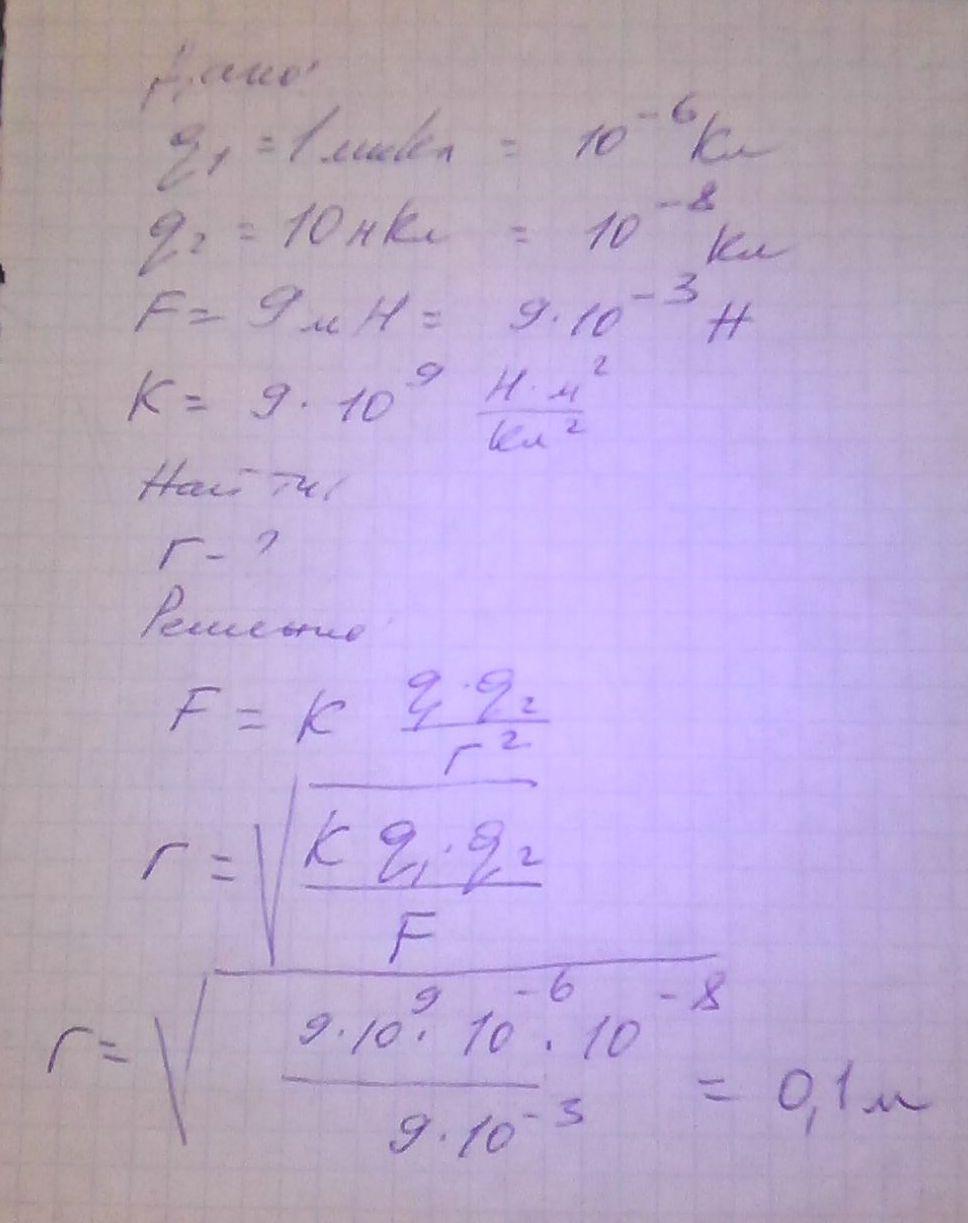 Дано:
q₁ = 1 мкКл = 10⁻⁶ Кл
q₂ = 10 нКл = 10⁻⁸ Кл
F = 9 мН = 9·10⁻³ Н
K = 9·10⁹ Н·м²/Кл²
Найти:
r - ?
Решение:
F = K q₁·q₂/r²
r = √(K q₁·q₂/F)
r = √(9·10⁹·10⁻⁶·10⁻⁸/9·10⁻³) = 0,1 м